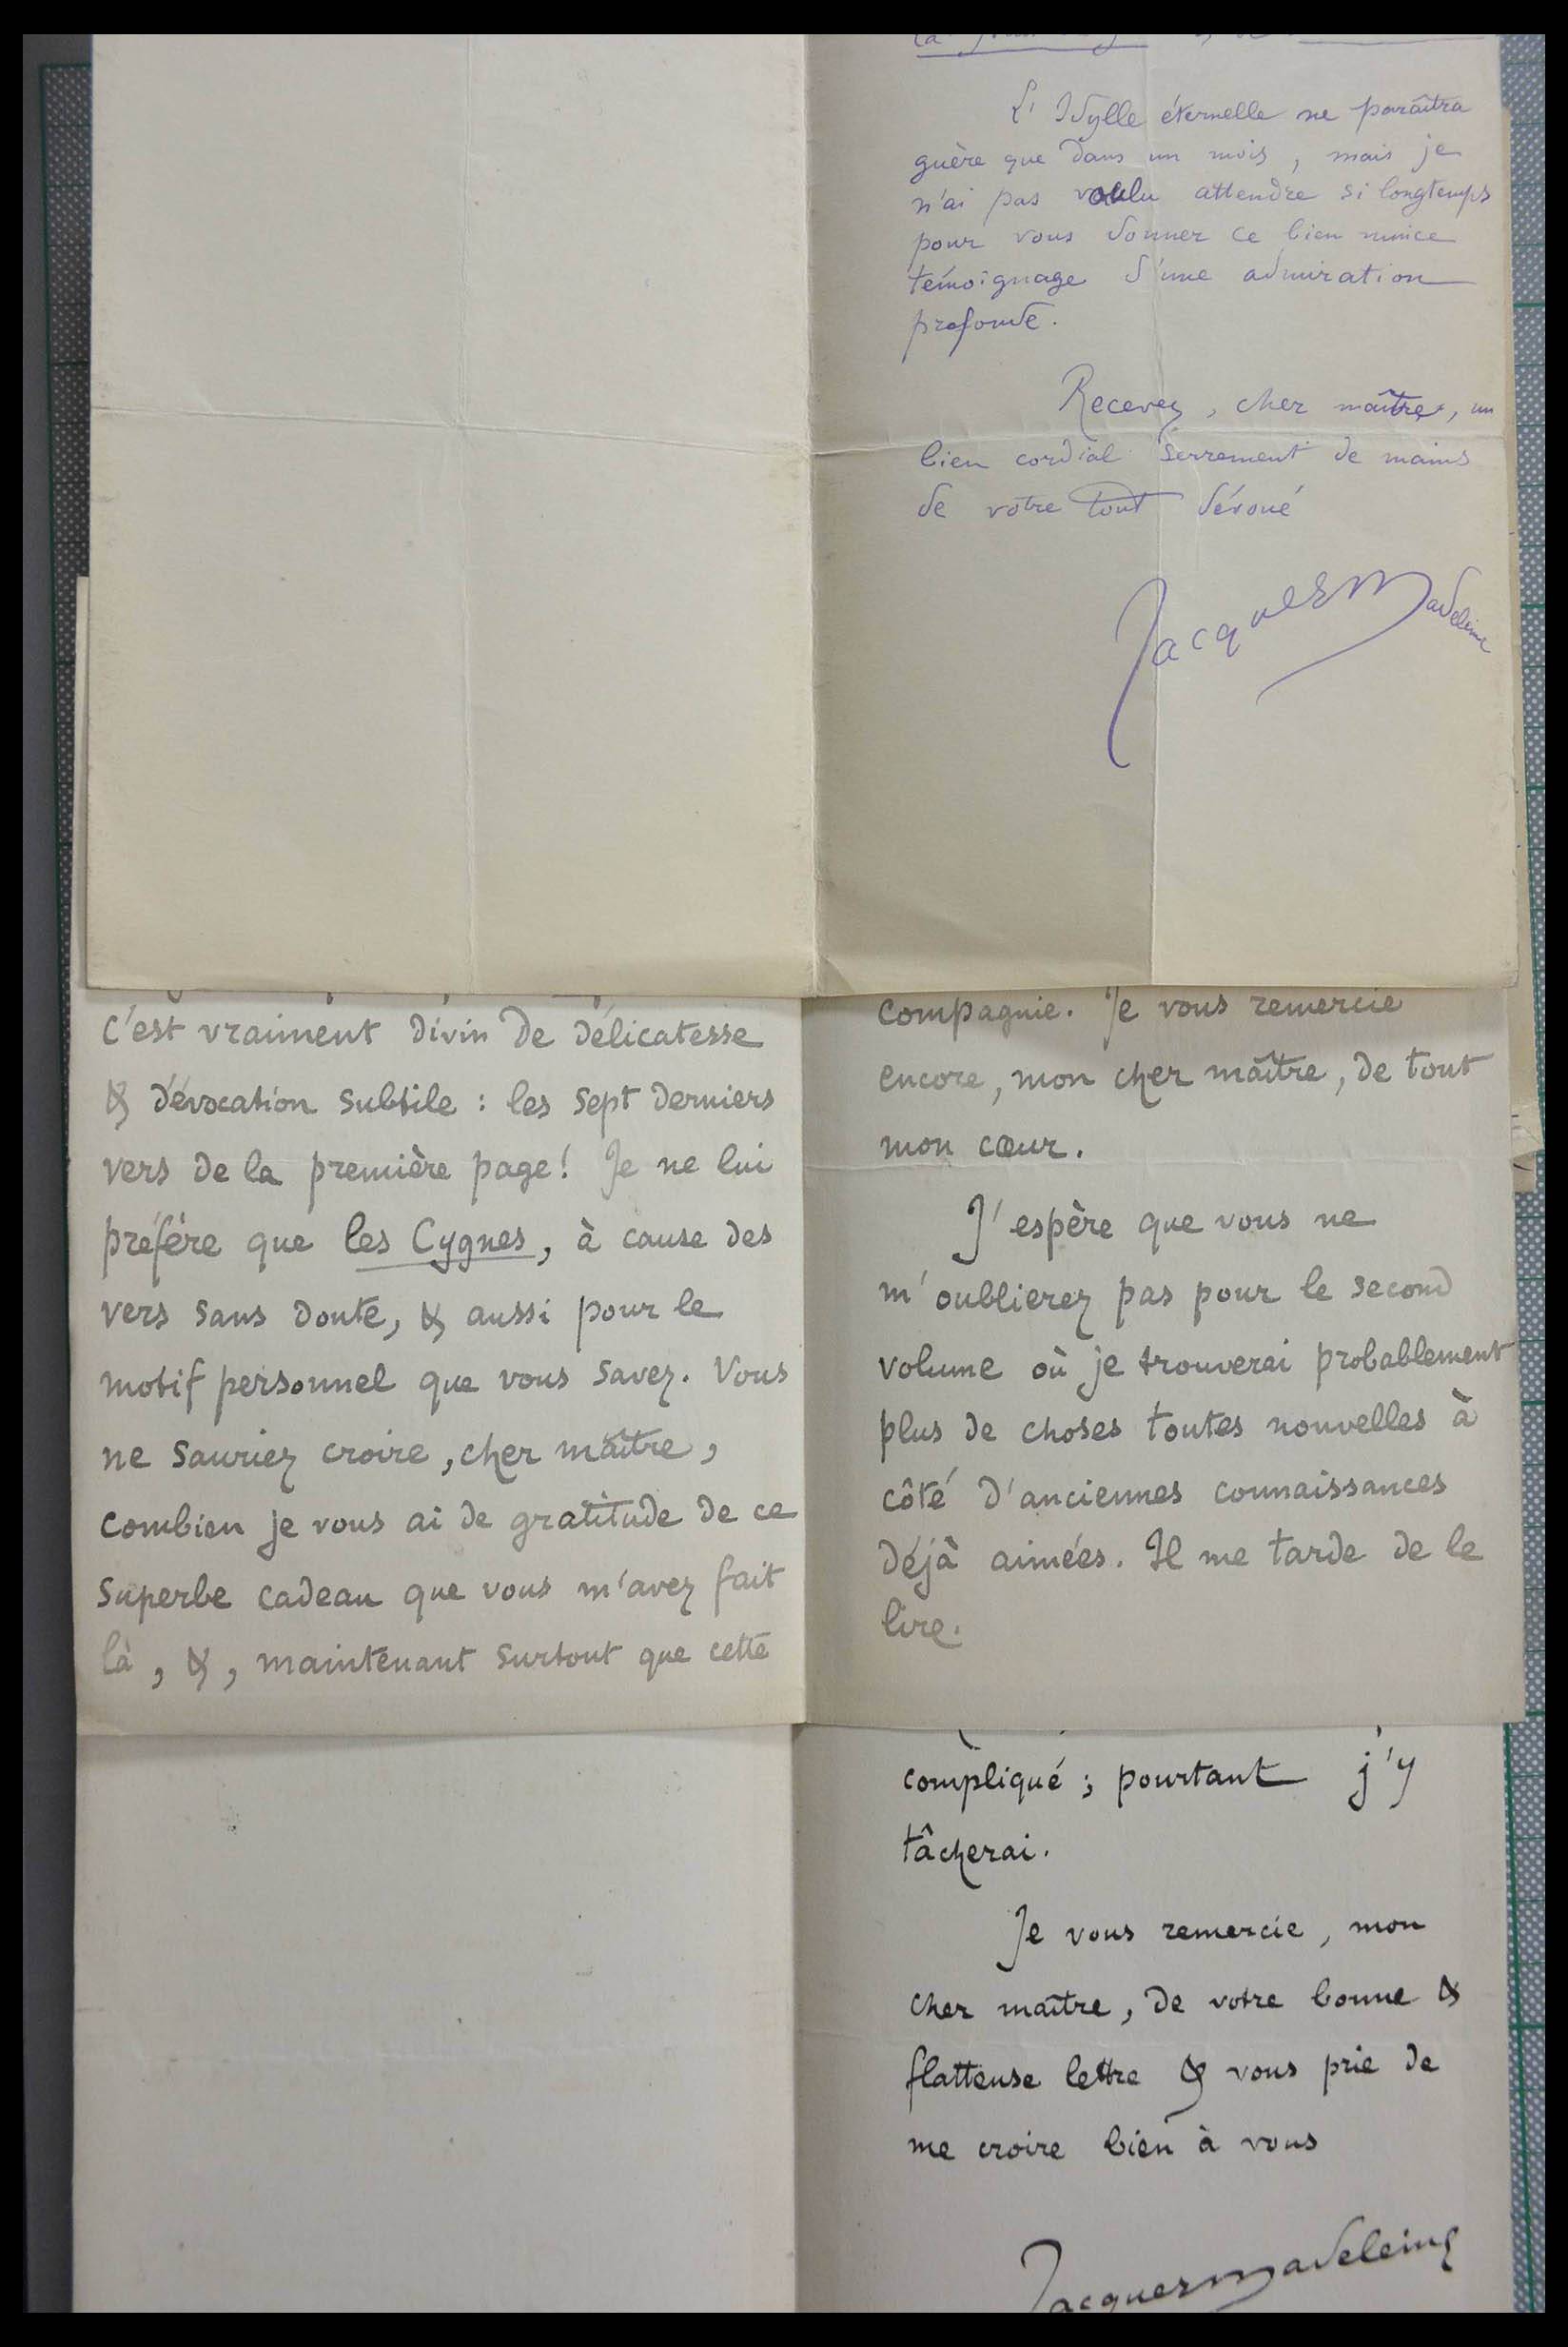 L'Idylle éternelle ne paraîtra
guère que dans un mois, mais je
n'ai pas voulu attendre si longtemps
pour vous donner ce bien mince
témoignage d'une admiration
profonde.
Recevez, cher maître, un
bien cordial serrement de mains
de votre tout dévoué
Jacques Madeleine
c'est vraiment divin de délicatesse
& d'évocation subtile : les sept derniers
vers de la première page! Je ne lui
préfère que les Cygnes, à cause des
vers sans doute, & aussi pour le
motif personnel que vous savez. Vous
ne sauriez croire, cher maître,
combien je vous ai de gratitude de ce
superbe cadeau que vous m'avez fait
là, &, maintenant surtout que cette
compagnie. Je vous remercie
encore, mon cher maître, de tout
mon cœur.
J'espère que vous ne
m'oublierez pas pour le second
volume où je trouverai probablement
plus de choses toutes nouvelles à
côté d'anciennes connaissances
déjà aimées. Il me tarde de le
lire.
compliqué ; pourtant j'y
tâcherai.
Je vous remercie, mon
cher maître, de votre bonne &
flatteuse lettre & vous prie de
me croire bien à vous
Jacques Madeleine